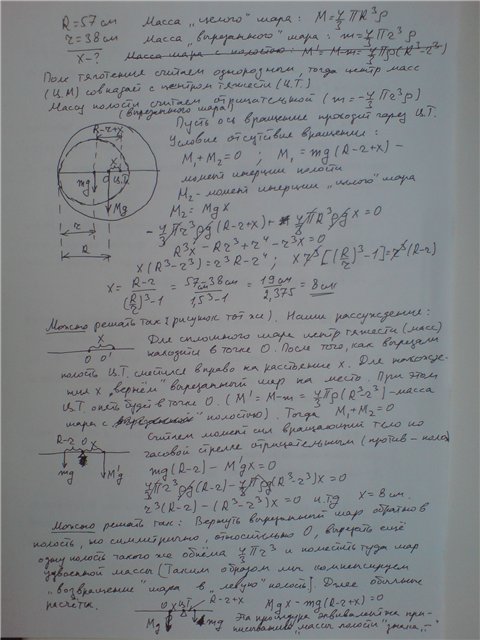 R=57 см Масса „целого" шара: M=4/3 πR³ρ
r=38 см Масса „вырезанного" шара: m=4/3 πr³ρ
x-? Масса шара с полостью: M'=M-m=4/3 πρ(R³-r³)
Поле тяготения считаем однородным, тогда центр масс
(Ц.М) совпадает с центром тяжести (Ц.Т.)
Массу полости считаем отрицательной (m=-4/3 πr³ρ)
(вырезанного шара)
Пусть ось вращения проходит через Ц.Т.
Условие отсутствие вращения:
M₁+M₂=0 ; M₁=mg(R-r+x)-
момент инерции полости
M₂-момент инерции „целого" шара
M₂=Mgx
R-r+x
x
O Ц.Т.
mg
Mg
r
R
-4/3 πr³ρg(R-r+x)+4/3 πR³ρgx=0
R³x-Rr³+r⁴-r³x=0
x(R³-r³)=r³R-r⁴; x r³[(R/r)³-1]=r³(R-r)
x=(R-r)/((R/r)³-1)=(57-38 см)/(1,5³-1)=19 см/2,375=8 см
Можно решать так (рисунок тот же). Наши рассуждения:
Для сплошного шара центр тяжести (масс)
находится в точке O. После того, как вырезали
x
O O'
полость Ц.Т. сместился вправо на расстояние x. Для нахожде-
ния x „вернём" вырезанный шар на место. При этом
Ц.Т. опять будет в точке O. (M'=M-m=4/3 πρ(R³-r³)-масса
шара с полостью). Тогда M₁+M₂=0
Считаем момент сил вращающий тело по
часовой стрелке отрицательным (против-полож
R-r O x
mg
M'g
mg(R-r)-M'gx=0
4/3 πr³ρg(R-r)-4/3 πρg(R³-r³)x=0
r³(R-r)-(R³-r³)x=0 и.т.д x=8 см.
Можно решать так: Вернуть вырезанный шар обратно в
полость, но симметрично, относительно O, вырезать ещё
одну полость такого же объёма 4/3 πr³ и поместить туда шар
удвоенной массы [Таким образом мы компенсируем
„возвращение" шара в „левую" полость]. Далее обычные
расчёты.
O x Ц.Т R-r+x
Mg
mg
Mgx-mg(R-r+x)=0
Эта процедура эквивалентна при-
писыванию „массы полости" знака „-"